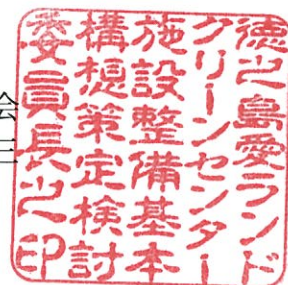 徳之島愛ランド
クリーンセンター
施設整備基本
構想策定検討
委員長之印
会